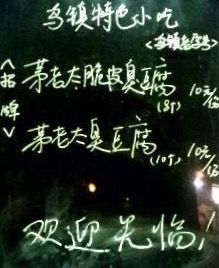 乌镇特色小吃
<乌镇老字号>
<招牌>
茅老太脆皮臭豆腐
(8个) 10元/份
茅老太臭豆腐
(10个) 10元/份
欢迎光临!